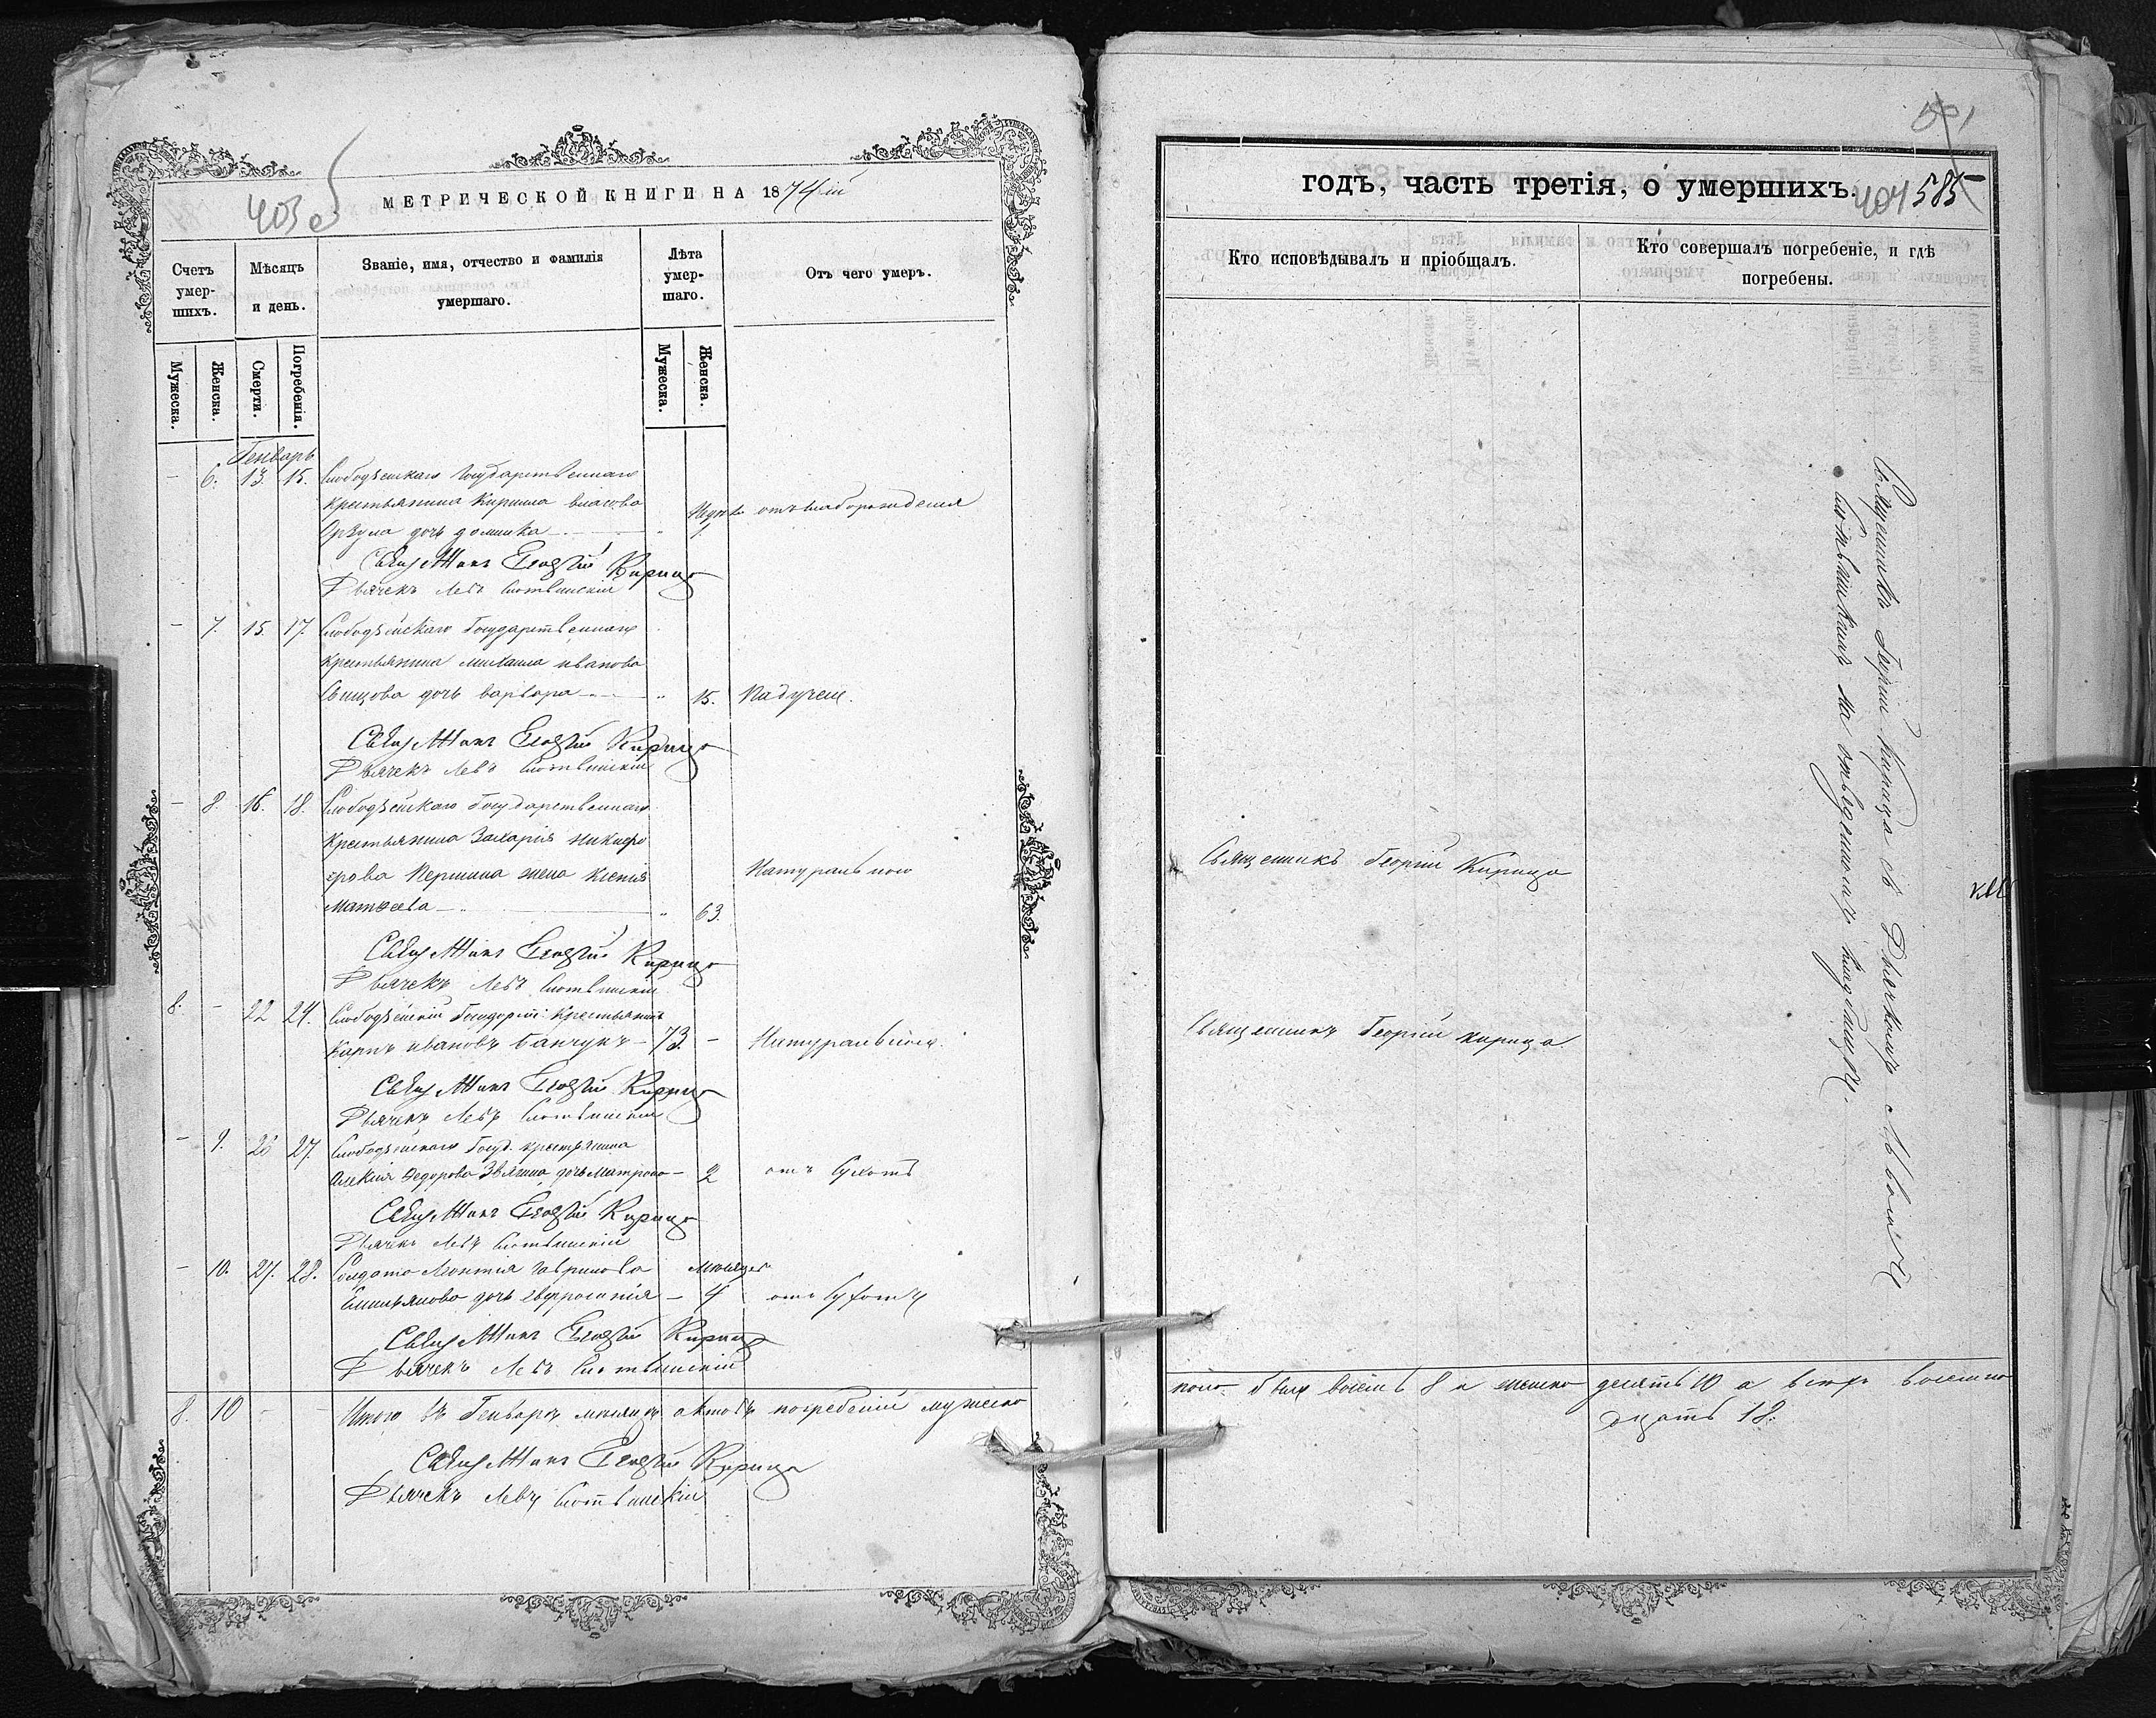 МЕТРИЧЕСКОЙ КНИГИ НА 1874ій
403 об
Счетъ умер-шихъ.
Мѣсяцъ и день.
Званіе, имя, отчество и фамилія умершаго.
Лѣта умер-шаго.
Отъ чего умеръ.
Мужеска.
Женска.
Смерти.
Погребенія.
Мужеска.
Женска.
Генварь
- 6. 13. 15. Слободзейскаго Государственнаго
крестьянина Кирила Власова
дочь Домника
отъ слаборожденія
Священникъ Георгій Кирица
Дьячекъ Левъ
- 7. 15. 17. Слободзейскаго Государственнаго
крестьянина Михаила Иванова
дочь Варвара - 15. Падучей.
Священникъ Георгій Кирица
Дьячекъ Левъ
- 8. 16. 18. Слободзейскаго Государственнаго
крестьянина Захарія Никифо
рова жена Ксенія Натуральною
Матѳеева - 63.
Священникъ Георгій Кирица
Дьячекъ Левъ
8. - 22 24. Слободзейскій Государств: крестьянинъ
Карпъ Ивановъ Банчукъ - 73. - Натуральною.
Священникъ Георгій Кирица
Дьячекъ Левъ
- 9. 26 27. Слободзейскаго Госуд. крестьянина
Алексія Ѳедорова Звягина дочь Матрона - 2 отъ сухотъ
Священникъ Георгій Кирица
Дьячекъ Левъ
- 10. 27. 28. Солдата Леонтія Гаврилова мѣсяц
дочь Евфросинія - 4 отъ сухотъ
Священникъ Георгій Кирица
Дьячекъ Левъ
8. 10 - - Итого въ Генварѣ мѣсяцѣ актовъ погребеній мужеско
Священникъ Георгій Кирица
Дьячекъ Левъ
годъ, часть третія, о умершихъ.
404 585
Кто исповѣдывалъ и пріобщалъ.
Кто совершалъ погребеніе, и гдѣ погребены.
Священникъ Георгій Кирица
Священникъ Георгій Кирица.
Священникъ Георгій Кирица съ Дьячкомъ Львомъ
на отведенномъ кладбищѣ.
пола было восемь 8 и женско десять 10 а всего восемна
дцать 18.